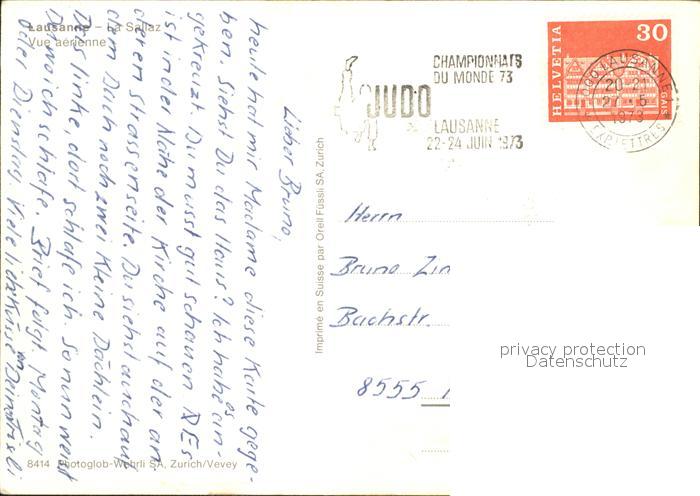 Lausanne – La Sallaz
Vue aérienne
Lieber Bruno,
heute hat mir Madame diese Karte gege-
ben. Siehst Du das Haus? Ich habe es ein-
gekreuzt. Du musst gut schauen. Es
ist in der Nähe der Kirche auf der an-
deren Strassenseite. Du siehst auch auf
dem Dach noch zwei kleine Dächlein.
Das linke, dort schlafe ich. So nun weist
Du wo ich schlafe. Brief folgt. Montag
oder Dienstag. Viele liebi Küsse
8414 Photoglob-Wehrli SA, Zurich/Vevey
Imprimé en Suisse par Orell Füssli SA, Zurich
CHAMPIONNATS
DU MONDE 73
JUDO
LAUSANNE
22-24 JUIN 1973
HELVETIA
30
GAIS
1000 LAUSANNE 1
1973
EXP. LETTRES
Herrn
Bruno Zin
Bachstr.
8555
privacy protection
Datenschutz